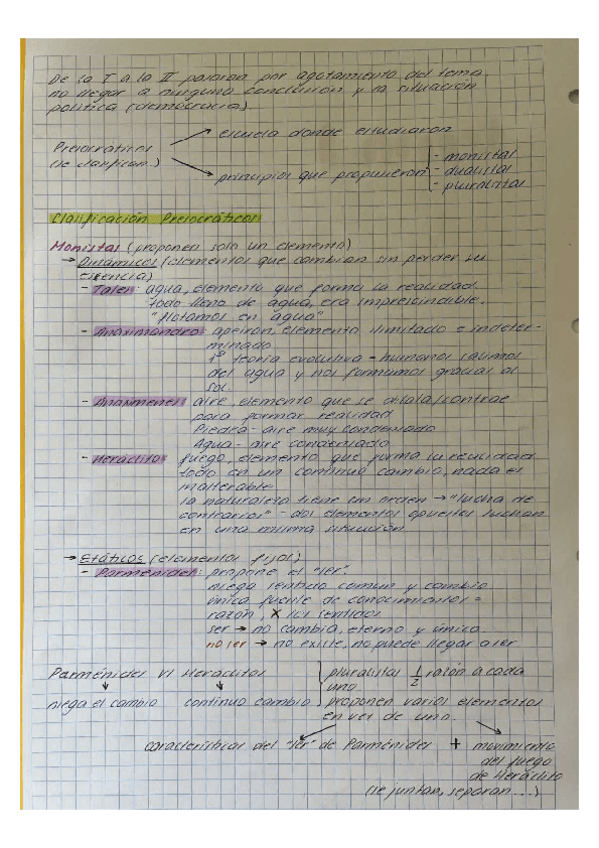 De la I a la II pasaron por agotamiento del tema,
no llegar a ninguna conclusión y la situación
política (democracia).
Presocráticos
(se clasifican)
→ escuela donde estudiaron
→ principios que propusieron
- monistas
- dualistas
- pluralistas
Clasificación Presocráticos
Monistas (proponen solo un elemento)
→ Dinámicos (elementos que cambian sin perder su
esencia)
- Tales: agua, elemento que forma la realidad.
todo lleno de agua, era imprescindible.
"Flotamos en agua"
- Anaximandro: apeiron, elemento ilimitado e indeter-
minado
1ª teoría evolutiva - humanos salimos
del agua y nos formamos gracias al
sol.
- Anaxímenes: aire, elemento que se dilata/contrae
para formar realidad
Piedra - aire muy condensado
Agua - aire condensado
- Heráclito: fuego, elemento que forma la realidad
todo en un continuo cambio, nada es
inalterable
la naturaleza tiene un orden → "lucha de
contrarios" - dos elementos opuestos luchan
en una misma situación
→ Estáticos (elementos fijos)
- Parménides: propone el "ser"
niega sentido común y cambio
única fuente de conocimientos =
razón, X los sentidos
ser → no cambia, eterno y único
no ser → no existe, no puede llegar a ser
Parménides VS Heráclitos
niega el cambio continuo cambio
pluralistas 1/2 razón a cada
uno
proponen varios elementos
en vez de uno.
características del "ser" de Parménides + movimiento
del fuego
de Heráclito
(se juntan, separan...)